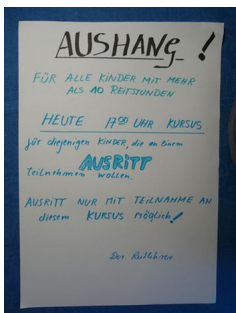 AUSHANG !
FÜR ALLE KINDER MIT MEHR
ALS 10 REITSTUNDEN
HEUTE 17⁰⁰ UHR KURSUS
für diejenigen KINDER, die an einem
AUSRITT
teilnehmen wollen.
AUSRITT NUR MIT TEILNAHME AN
diesem KURSUS möglich!
Der Reitlehrer